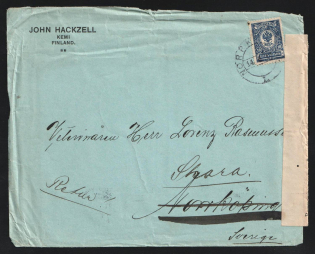 JOHN HACKZELL
KEMI
FINLAND.
Veterinären Herr Lorenz Rasmusse
Skara.
Norrköping
Sverige